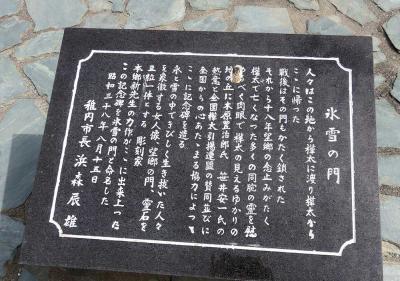 氷雪の門
人々はこの地から樺太に渡り樺太から
ここに帰った
戦後はその門もかたく鎖された
それから十八年望郷の念止みがたく
樺太で亡くなった多くの同胞の霊を慰
めべく肉眼で樺太の見えるゆかりの
地の丘に木原豊治郎氏 笹井安一氏の
熱意と全国樺太引揚連盟の賛同並びに
全国からの心あたゝまる協力によって
ここに記念碑を造る
氷と雪の中できびしく生き抜いた人々
を象徴する女人像 望郷の門、霊石を
三位一体とする 彫刻家
本郷新先生の力作がここに出来上った
この記念碑を氷雪の門と命名した
昭和三十八年八月十五日
稚内市長 浜森辰雄